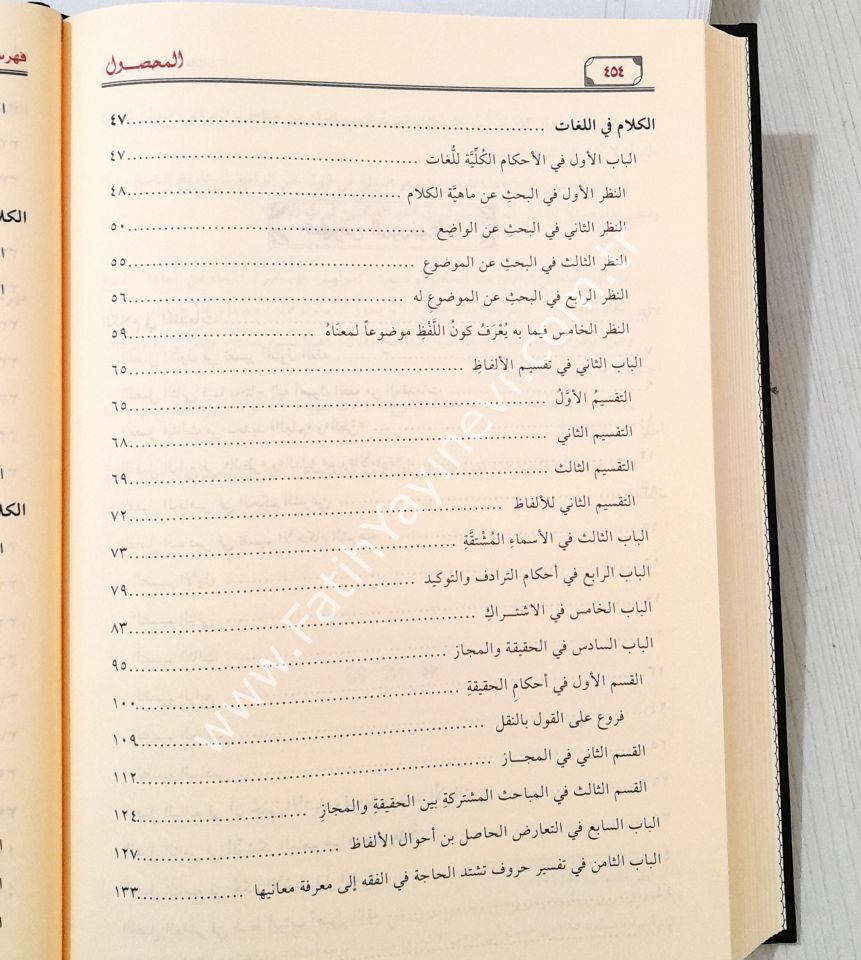 ٤٥٤
المحصول
الكلام في اللغات ٤٧
الباب الأول في الأحكام الكُلِّيَّة للُّغات ٤٧
النظر الأول في البحثِ عن ماهيَّة الكلام ٤٨
النظر الثاني في البحثِ عن الواضِع ٥٠
النظر الثالث في البحثِ عن الموضوعِ ٥٥
النظر الرابع في البحثِ عن الموضوعِ له ٥٦
النظر الخامس فيما به يُعْرَفُ كونُ اللَّفْظِ موضوعاً لمعنَاهُ ٥٩
الباب الثاني في تقسيم الألفاظِ ٦٥
التقسيمُ الأوَّلُ ٦٥
التقسيم الثاني ٦٨
التقسيم الثالث ٦٩
التقسيم الثاني للألفاظ ٧٢
الباب الثالث في الأسماءِ المُشْتقَّةِ ٧٣
الباب الرابع في أحكام الترادف والتوكيد ٧٩
الباب الخامس في الاشتراكِ ٨٣
الباب السادس في الحقيقة والمجاز ٩٥
القسم الأول في أحكامِ الحقيقةِ ١٠٠
فروع على القول بالنقل ١٠٩
القسم الثاني في المجاز ١١٢
القسم الثالث في المباحث المشتركةِ بين الحقيقةِ والمجازِ ١٢٤
الباب السابع في التعارض الحاصل بن أحوال الألفاظ ١٢٧
الباب الثامن في تفسير حروف تشتد الحاجة في الفقه إلى معرفة معانيها ١٣٣
www.FatihYayinevi.com.tr